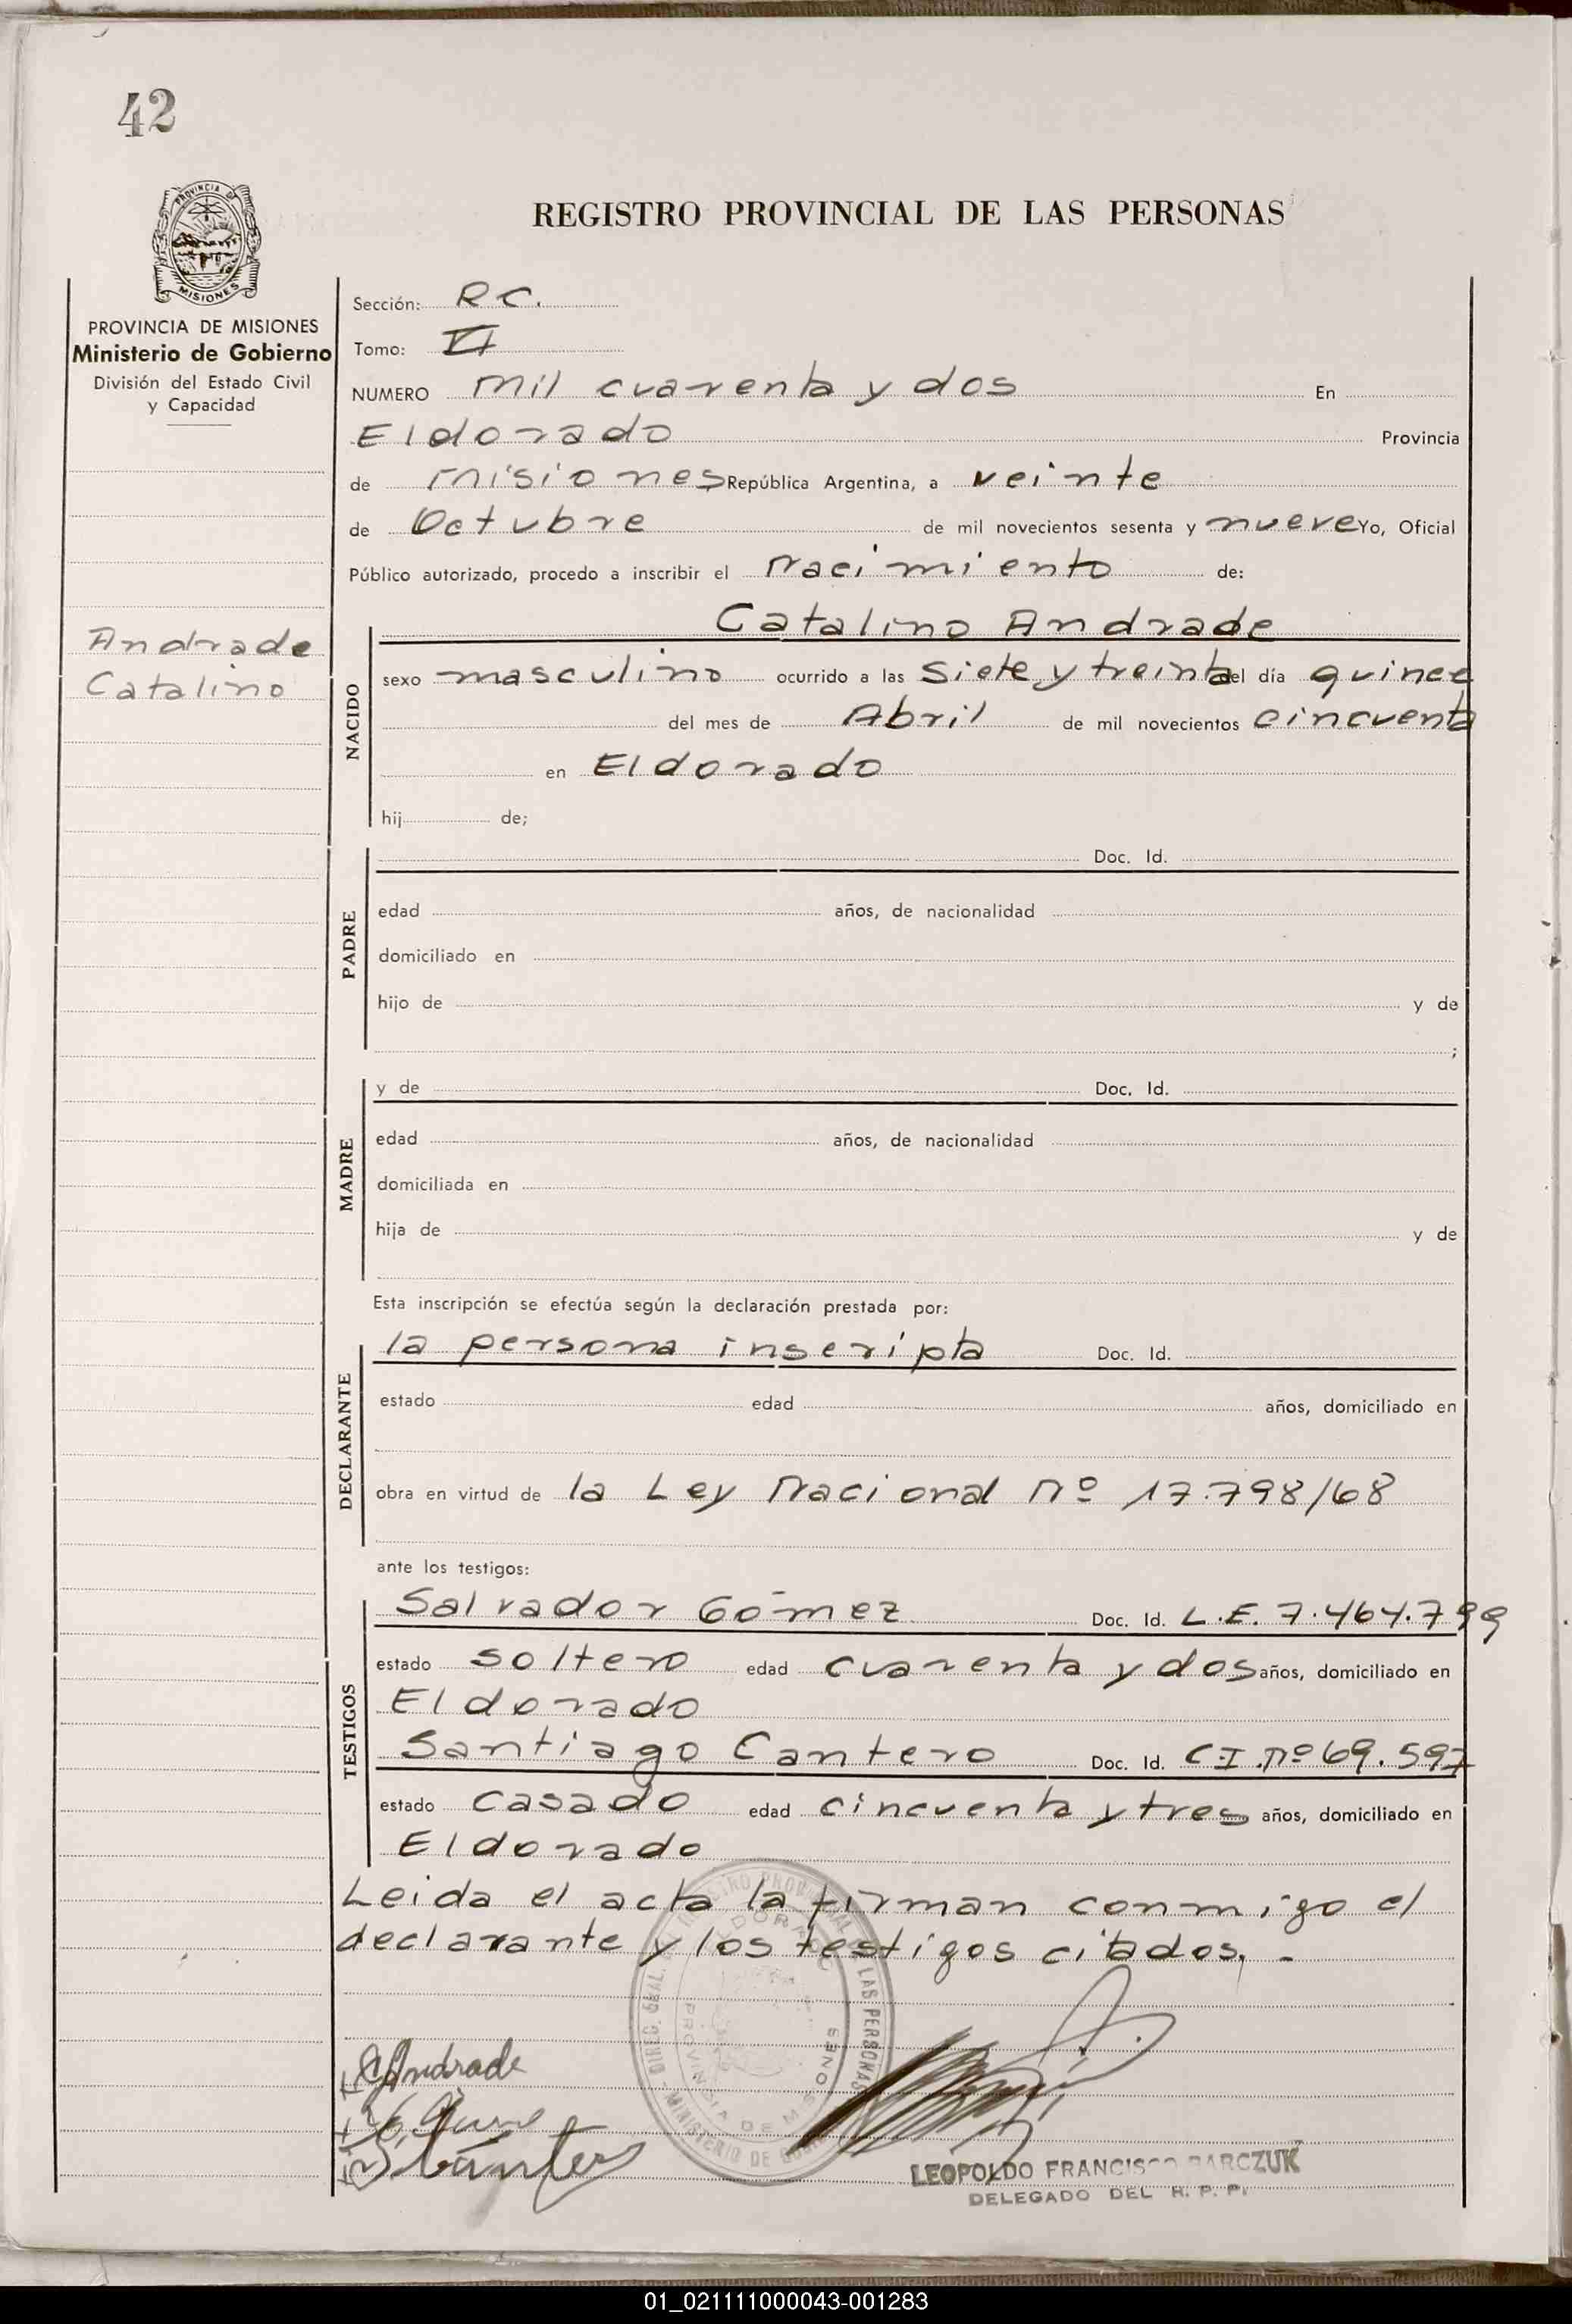 42
PROVINCIA DE
MISIONES
REGISTRO PROVINCIAL DE LAS PERSONAS
PROVINCIA DE MISIONES
Ministerio de Gobierno
División del Estado Civil
y Capacidad
Andrade
Catalino
Sección: R C.
Tomo: VI
NUMERO mil cuarenta y dos En
Eldorado Provincia
de misiones República Argentina, a veinte
de Octubre de mil novecientos sesenta y nueve Yo, Oficial
Público autorizado, procedo a inscribir el nacimiento de:
NACIDO
Catalino Andrade
sexo masculino ocurrido a las siete y treinta del día quince
del mes de Abril de mil novecientos cincuenta
en Eldorado
hij de;
PADRE
Doc. Id.
edad años, de nacionalidad
domiciliado en
hijo de y de
;
MADRE
y de Doc. Id.
edad años, de nacionalidad
domiciliada en
hija de y de
Esta inscripción se efectúa según la declaración prestada por:
DECLARANTE
la persona inscripta Doc. Id.
estado edad años, domiciliado en
obra en virtud de la Ley Nacional Nº 17.798/68
ante los testigos:
TESTIGOS
Salvador Gómez Doc. Id. L.E. 7.464.799
estado soltero edad cuarenta y dos años, domiciliado en
Eldorado
Santiago Cantero Doc. Id. C.I. Nº 69.597
estado casado edad cincuenta y tres años, domiciliado en
Eldorado
Leida el acta la firman conmigo el
declarante y los testigos citados. -
DIREC. GRAL. REGISTRO PROVINCIAL DE LAS PERSONAS
ELDORADO
PROVINCIA DE MISIONES
MINISTERIO DE GOBIERNO
Andrade
LEOPOLDO FRANCISCO BARCZUK
DELEGADO DEL R. P. P.
01_021111000043-001283